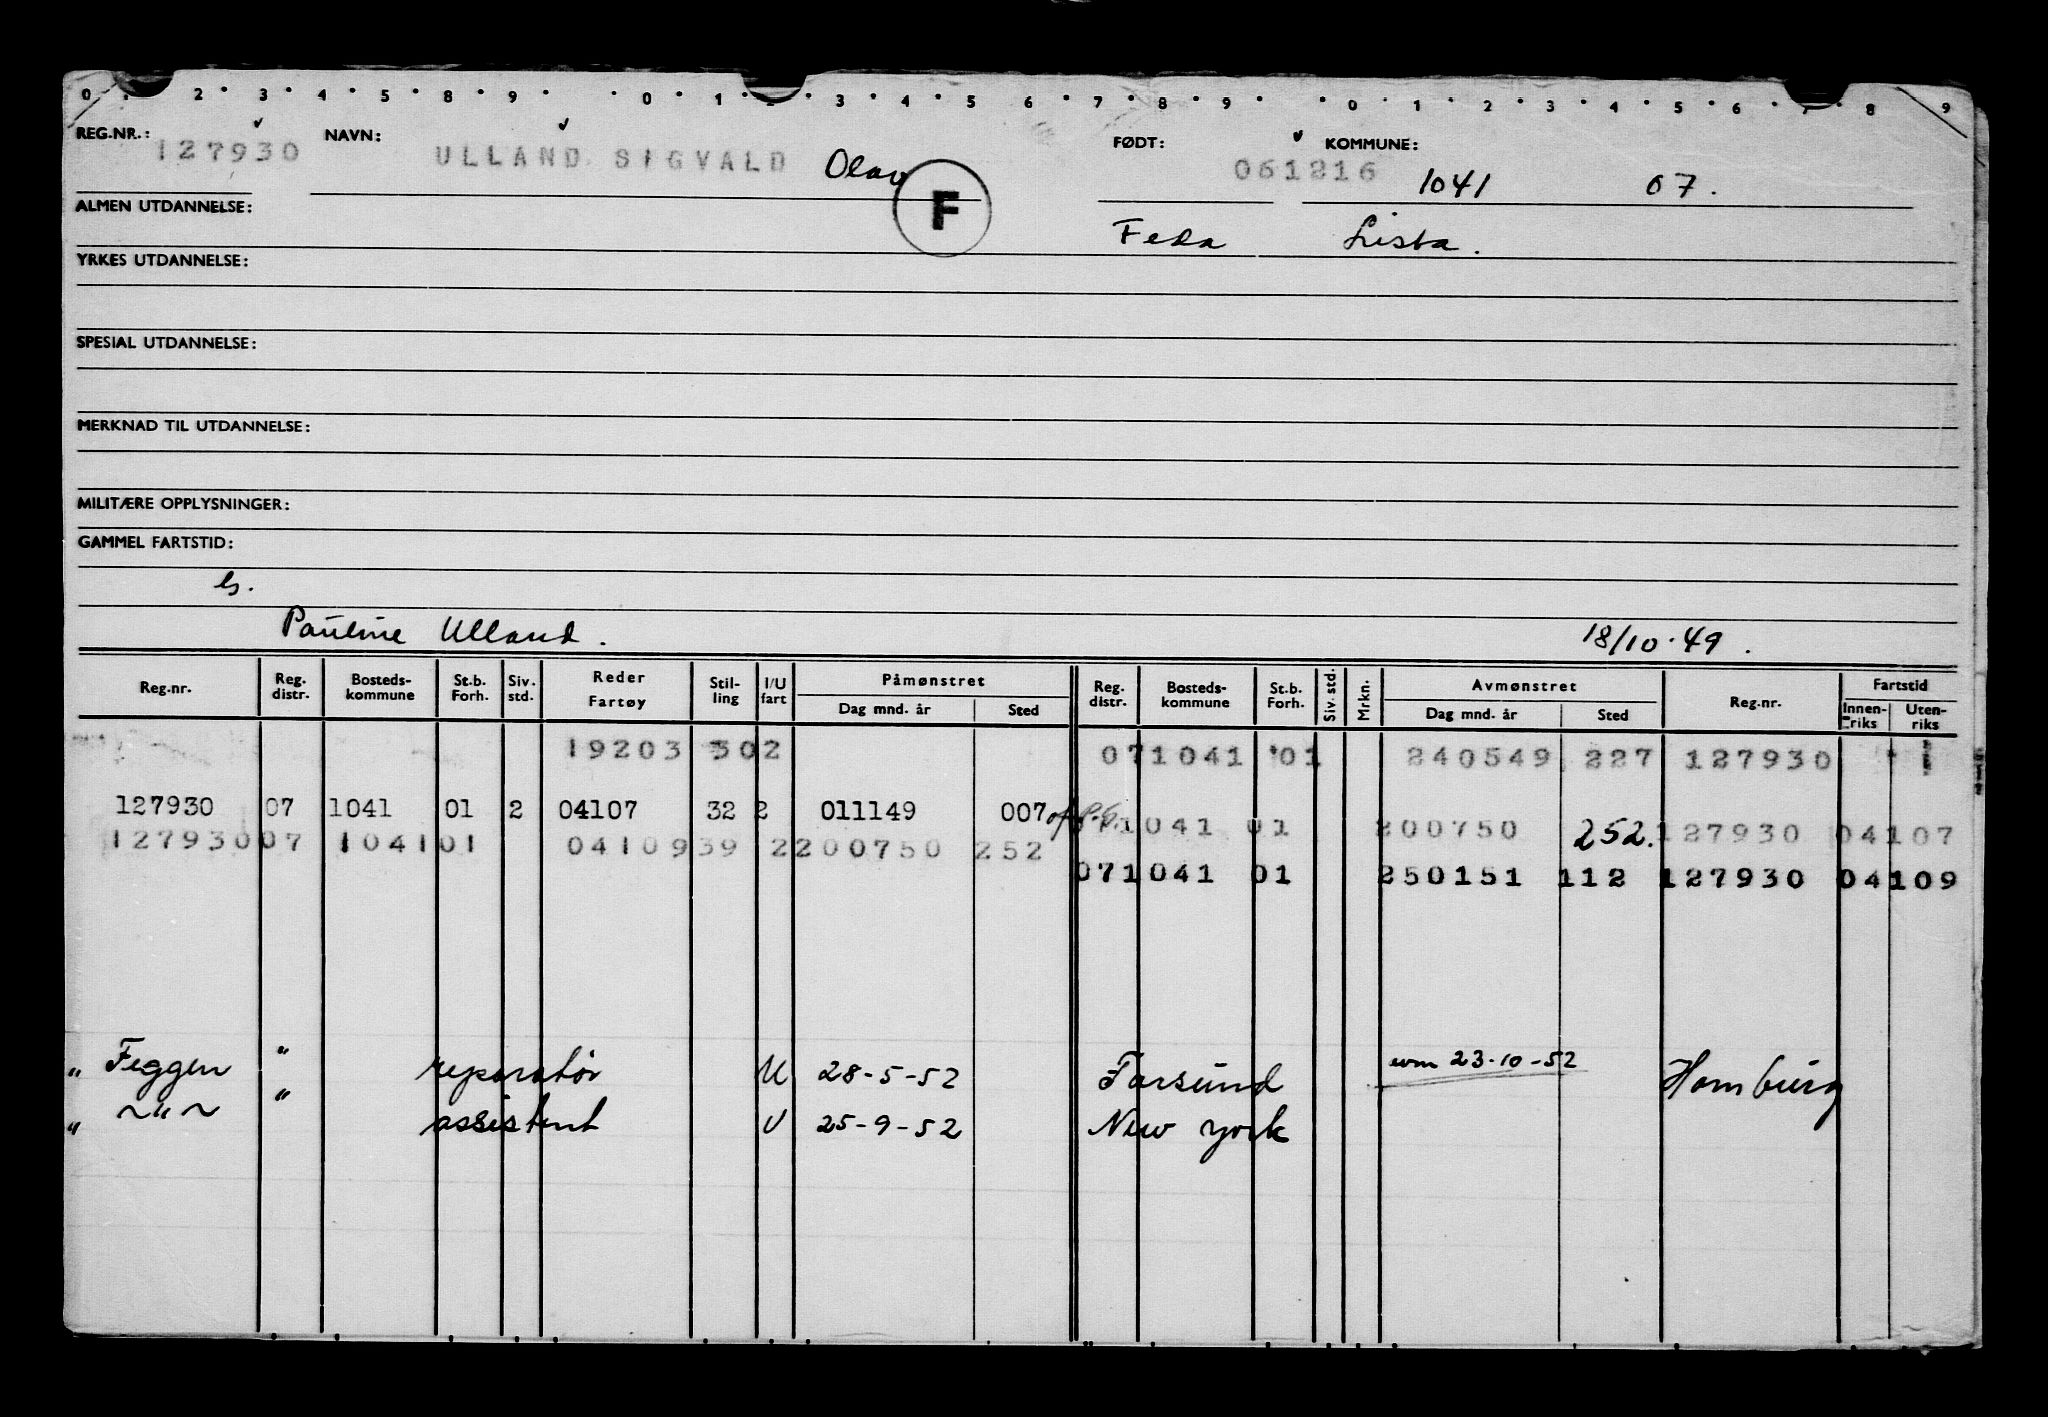 0 . 2 . 3 . 4 . 5 . 8 . 9 . . 0 . 1 . 3 . 4 . 5 6 . 7 . 8 . 9 . . 0 . 1 . 2 . 3 . 4 . 5 . 6 . 7 . 8 9
REG.NR.: 127930 NAVN: ULLAND SIGVALD Olav FØDT: 061216 KOMMUNE: 1041 07.
F
ALMEN UTDANNELSE: Feda Lista.
YRKES UTDANNELSE:
SPESIAL UTDANNELSE:
MERKNAD TIL UTDANNELSE:
MILITÆRE OPPLYSNINGER:
GAMMEL FARTSTID:
Pauline Ulland. 18/10.49.
Reg.nr. Reg. distr. Bosteds-kommune St.b. Forh. Siv. std. Reder Fartøy Stil-ling I/U fart Påmønstret Dag mnd. år Sted Reg. distr. Bosteds-kommune St.b. Forh. Siv. std. Mrkn. Avmønstret Dag mnd. år Sted Reg.nr. Fartstid Innen-riks Uten-riks
19203 302 071041 01 240549 227 127930
127930 07 1041 01 2 04107 32 2 011149 007 071041 01 200750 252. 127930 04107
127930 07 104101 04109 39 2 200750 252
071041 01 250151 112 127930 04109
" Feggen " reparatør U 28-5-52 Farsund 23-10-52 Hamburg
" ~"~ " assistent U 25-9-52 New York